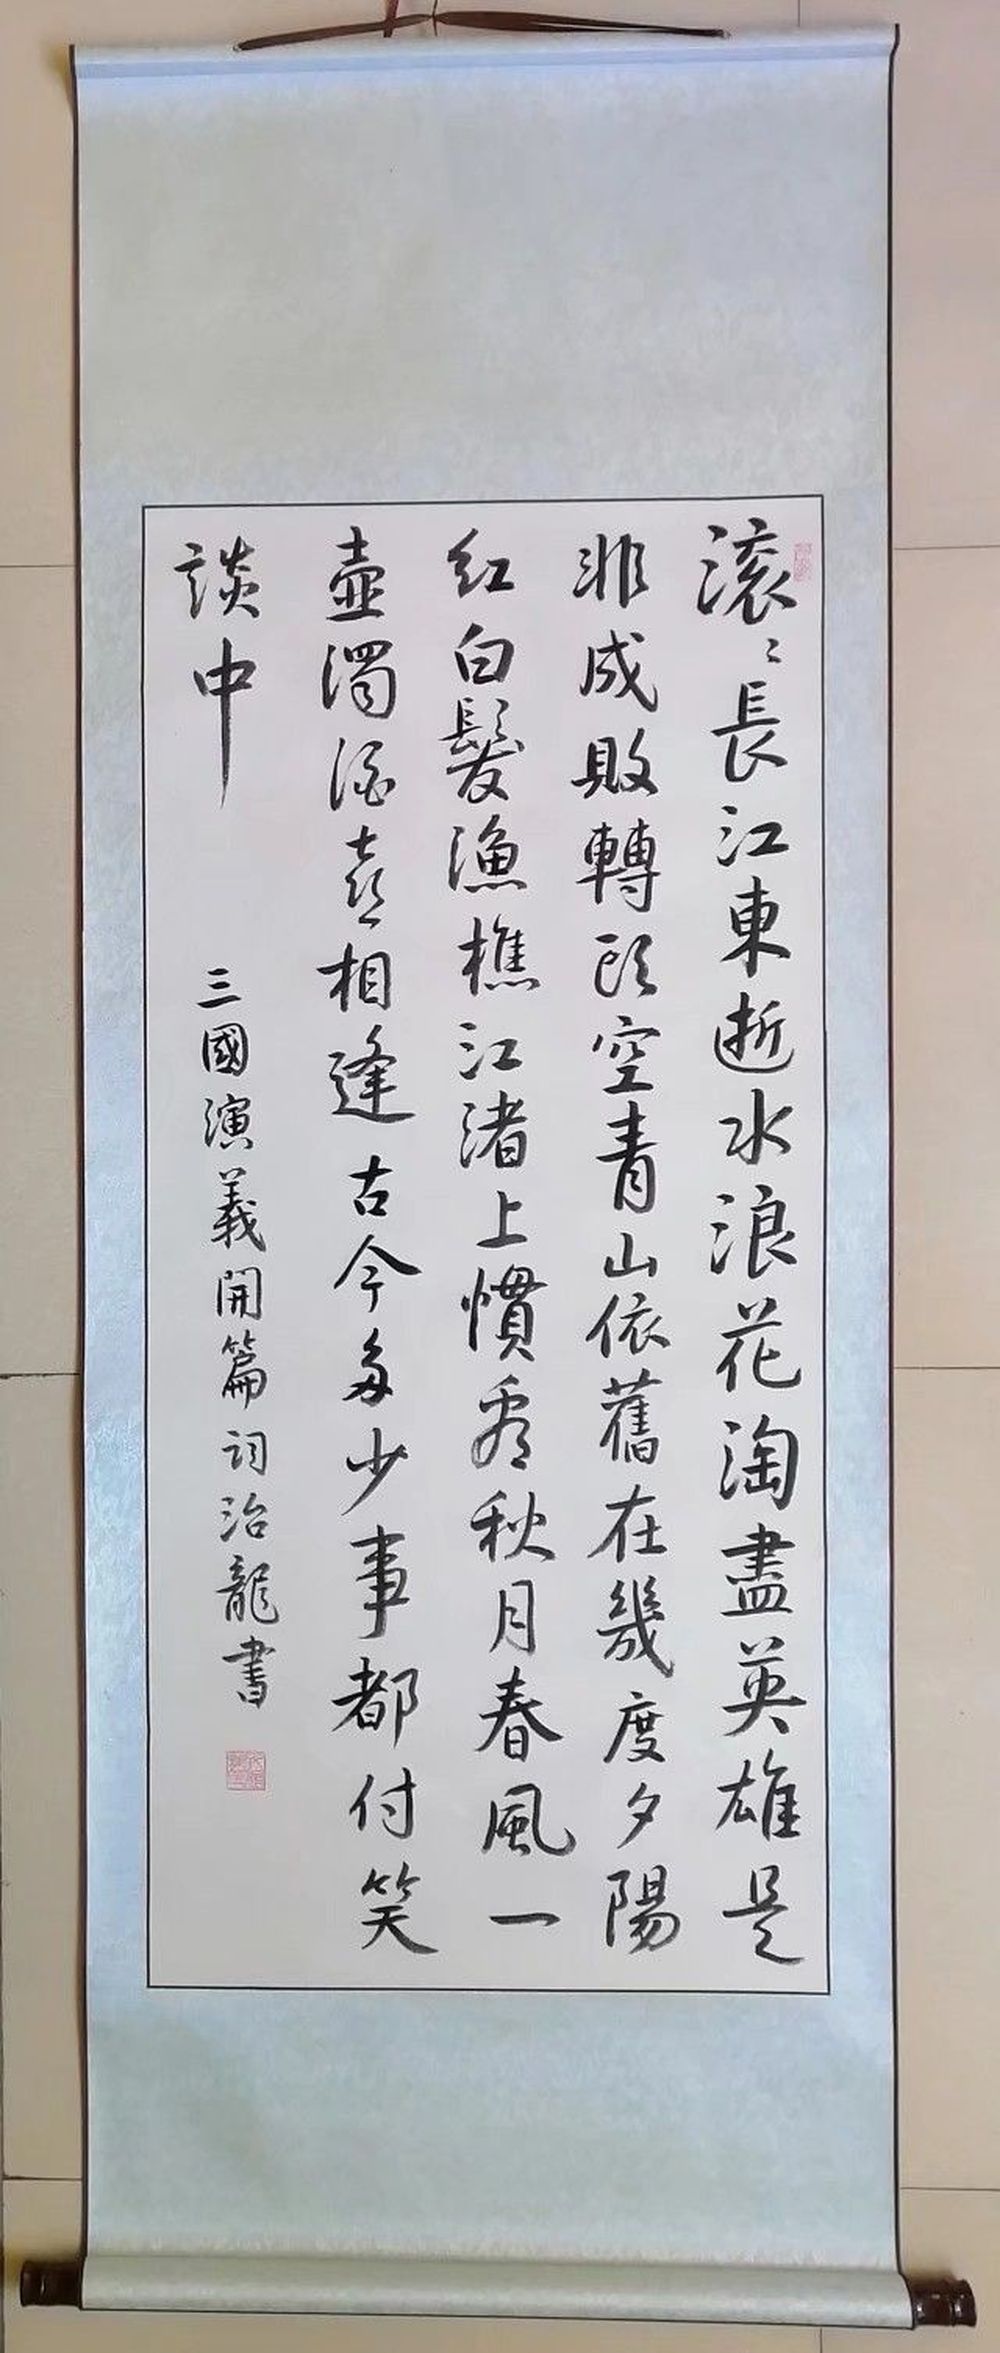 滚〻長江東逝水浪花淘盡英雄是
非成敗轉頭空青山依舊在幾度夕陽
紅白髮漁樵江渚上慣看秋月春風一
壺濁酒喜相逢古今多少事都付笑
談中
三國演義開篇詞治龍書